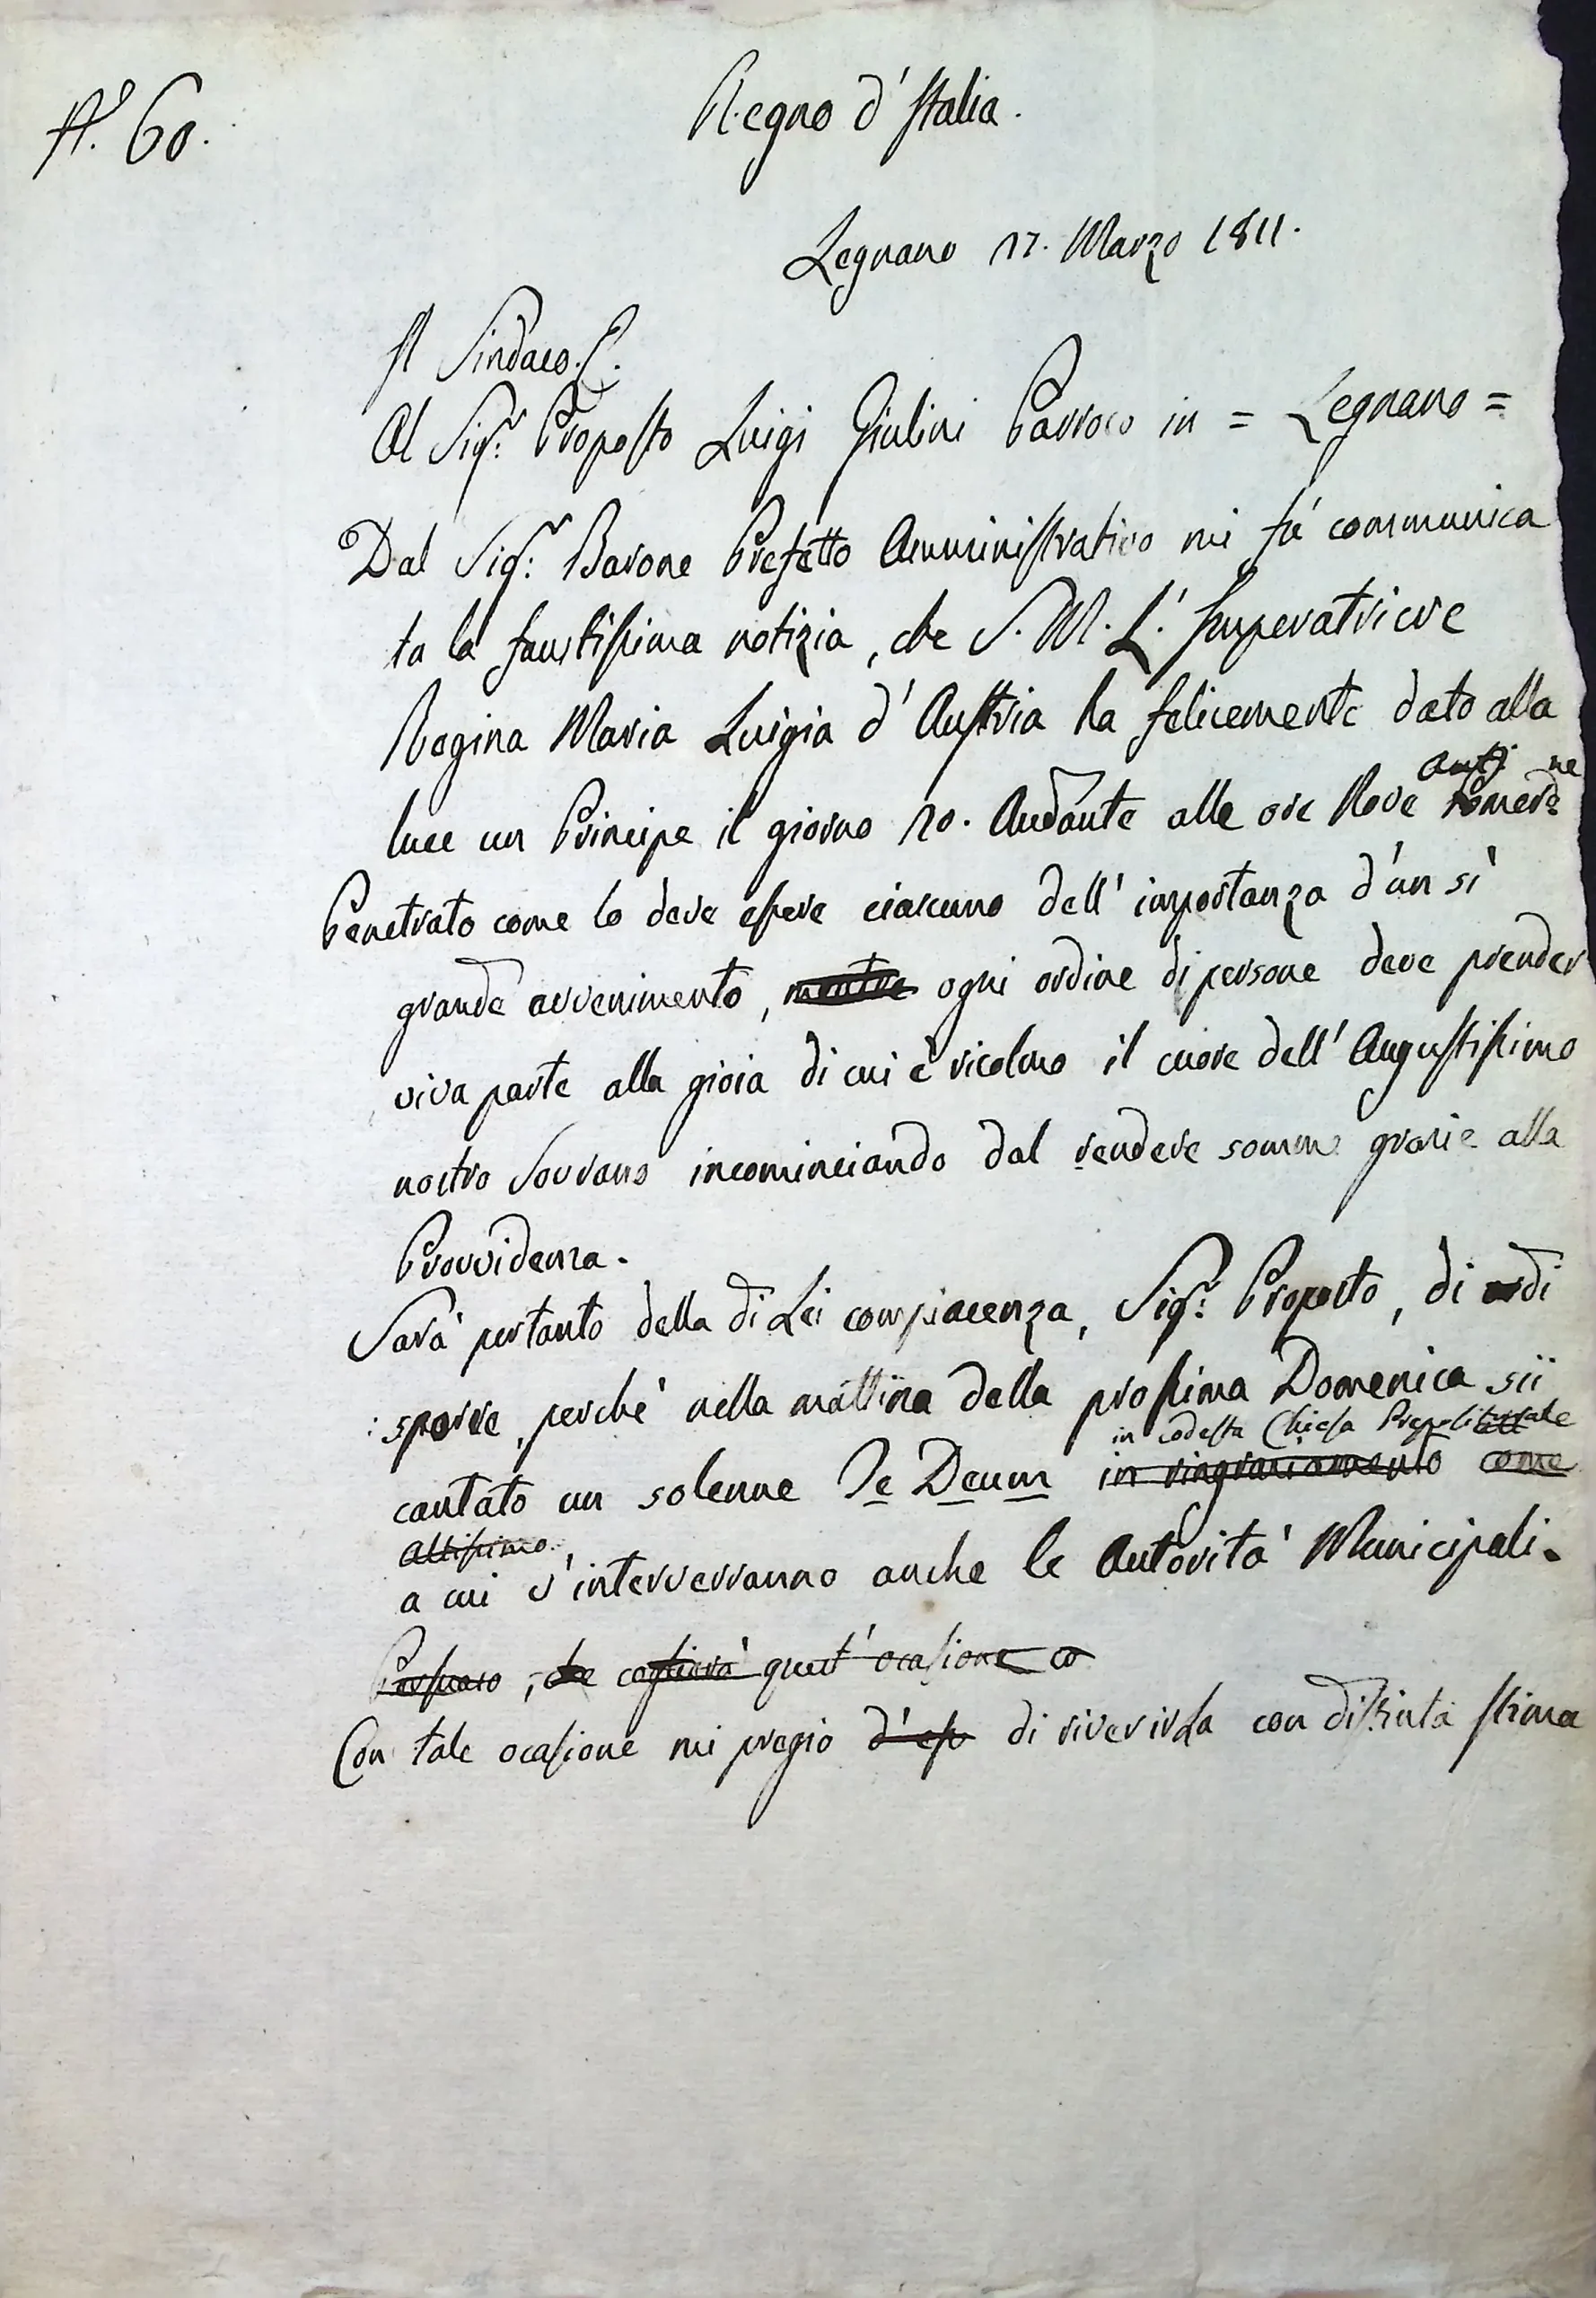 N.° 60.
Regno d'Italia.
Legnano 27. Marzo 1811.
Il Sindaco. C.
Al Sig.r Proposto Luigi Giulini Parroco in = Legnano =
Dal Sig.r Barone Prefetto Amministrativo mi fù communica
ta la faustissima notizia, che S. M. L'Imperatricre
Regina Maria Luigia d'Austria ha felicemente dato alla
Anti ne
luce un Principe il giorno 20. Andante alle ore Nove Pomerd.e
Penetrato come lo deve essere ciascuno dell'importanza d'un sì
grande avvenimento, mentre ogni ordine di persone deve prender
viva parte alla gioia di cui è ricolmo il cuore dell'Augustissimo
nostro Sovrano incominciando dal rendere somme grazie alla
Provvidenza.
Sarà pertanto della di Lei compiacenza, Sig.r Proposto, di di
:sporre, perchè nella mattina della prossima Domenica sii
in codesta Chiesa Prepositurale
cantato un solenne Te Deum in ringraziamento come
Altissimo.
a cui v'interverranno anche le Autorità Municipali.
Persuaso, che coglierà quest'ocasione co
Con tale ocasione mi pregio d'ess di riverirla con distinta stima